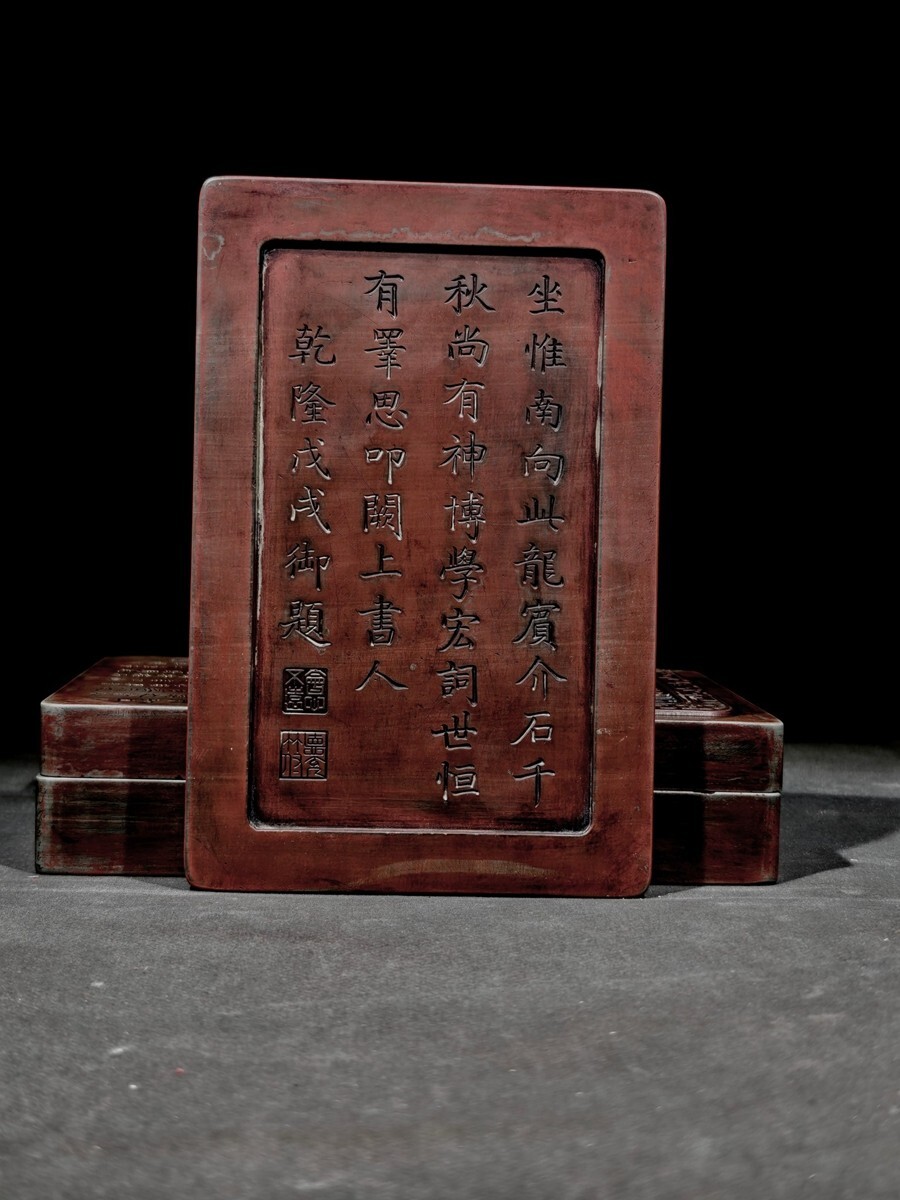 坐惟南向此龍賓介石千
秋尚有神博學宏詞世恒
有睪思叩闕上書人
乾隆戊戌御題